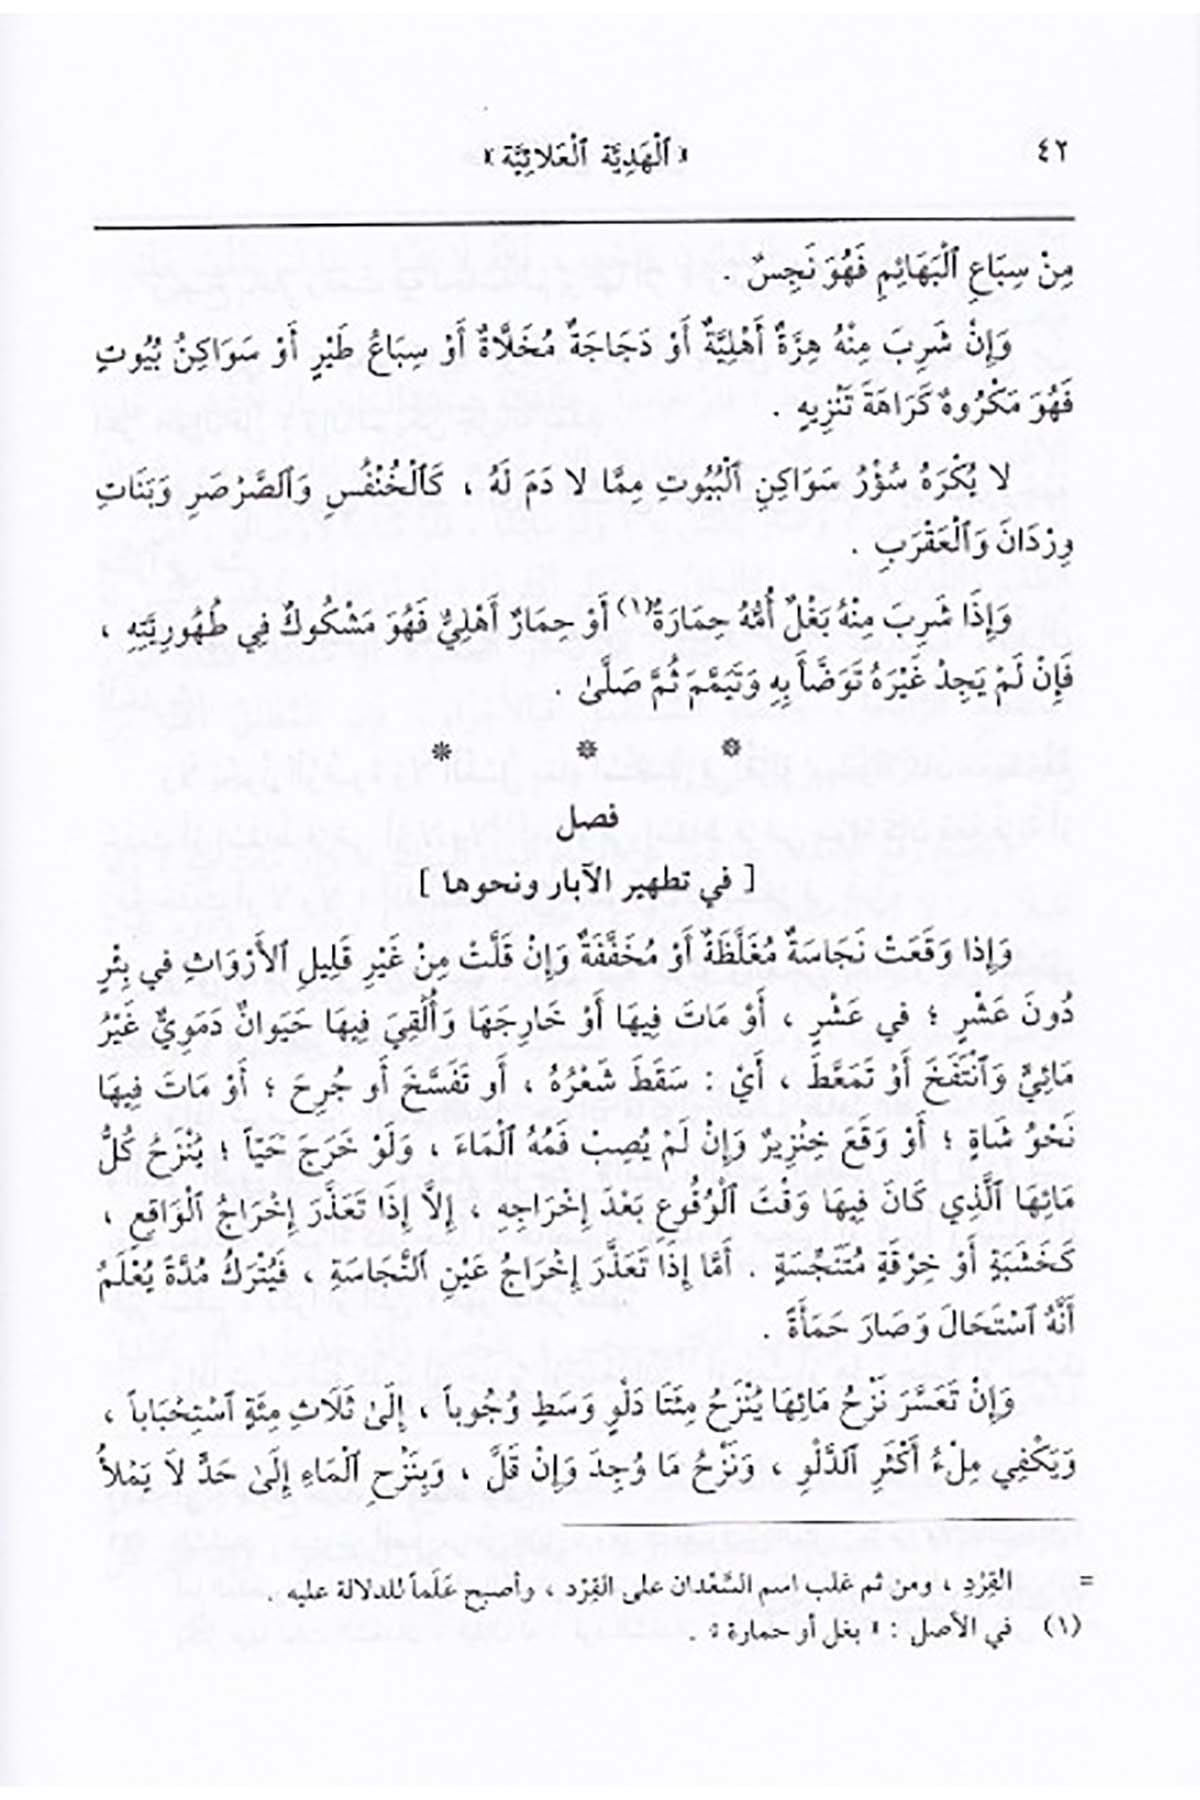 ٤٢
« ٱلْهَدِيَّة ٱلْعَلائِيَّة »
مِنْ سِبَاعِ ٱلْبَهَائِمِ فَهُوَ نَجِسٌ .
وَإِنْ شَرِبَ مِنْهُ هِرَّةٌ أَهْلِيَّةٌ أَوْ دَجَاجَةٌ مُخَلَّاةٌ أَوْ سِبَاعُ طَيْرٍ أَوْ سَوَاكِنُ بُيُوتٍ
فَهُوَ مَكْرُوهٌ كَرَاهَةَ تَنْزِيهٍ .
لا يُكْرَهُ سُؤْرُ سَوَاكِنِ ٱلْبُيُوتِ مِمَّا لا دَمَ لَهُ ، كَٱلْخُنْفُسِ وَٱلصَّرْصَرِ وَبَنَاتِ
وِرْدَانَ وَٱلْعَقْرَبِ .
وَإِذَا شَرِبَ مِنْهُ بَغْلٌ أُمُّهُ حِمَارَةٌ(١) أَوْ حِمَارٌ أَهْلِيٌّ فَهُوَ مَشْكُوكٌ فِي طُهُورِيَّتِهِ ،
فَإِنْ لَمْ يَجِدْ غَيْرَهُ تَوَضَّأَ بِهِ وَتَيَمَّمَ ثُمَّ صَلَّىٰ .
* * *
فصل
[ في تطهير الآبار ونحوها ]
وَإِذا وَقَعَتْ نَجَاسَةٌ مُغَلَّظَةٌ أَوْ مُخَفَّفَةٌ وَإِنْ قَلَّتْ مِنْ غَيْرِ قَلِيلِ ٱلأَرْوَاثِ في بِئْرٍ
دُونَ عَشْرٍ ؛ في عَشْرٍ ، أَوْ مَاتَ فِيهَا أَوْ خَارِجَهَا وَأُلْقِيَ فِيهَا حَيَوانٌ دَمَوِيٌّ غَيْرُ
مَائِيٍّ وَٱنْتَفَخَ أَوْ تَمَعَّطَ ، أَيْ : سَقَطَ شَعْرُهُ ، أَو تَفَسَّخَ أَو جُرِحَ ؛ أَوْ مَاتَ فِيهَا
نَحْوُ شَاةٍ ؛ أَوْ وَقَعَ خِنْزِيرٌ وَإِنْ لَمْ يُصِبْ فَمُهُ ٱلْمَاءَ ، وَلَوْ خَرَجَ حَيّاً ؛ يُنْزَحُ كُلُّ
مَائِهَا ٱلَّذِي كَانَ فِيهَا وَقْتَ ٱلْوُقُوعِ بَعْدَ إِخْرَاجِهِ ، إِلَّا إِذَا تَعَذَّرَ إِخْرَاجُ ٱلْوَاقِعِ ،
كَخَشَبَةٍ أَوْ خِرْقَةٍ مُتَنَجِّسَةٍ . أَمَّا إِذَا تَعَذَّرَ إِخْرَاجُ عَيْنِ ٱلنَّجَاسَةِ ، فَيُتْرَكُ مُدَّةً يُعْلَمُ
أَنَّهُ ٱسْتَحَالَ وَصَارَ حَمَأَةً .
وَإِنْ تَعَسَّرَ نَزْحُ مَائِهَا يُنْزَحُ مِئَتَا دَلْوٍ وَسَطٍ وُجُوباً ، إِلَىٰ ثَلَاثِ مِئَةٍ ٱسْتِحْبَاباً ،
وَيَكْفِي مِلْءُ أَكْثَرِ ٱلدَّلْوِ ، وَنَزْحُ مَا وُجِدَ وَإِنْ قَلَّ ، وَبِنَزْحِ ٱلْمَاءِ إِلَىٰ حَدٍّ لَا يَمْلأُ
= القِرْدِ ، ومن ثم غلب اسم السَّعْدان على القِرْد ، وأصبح عَلَماً للدلالة عليه .
(١) في الأصل : « بغل أو حمارة » .